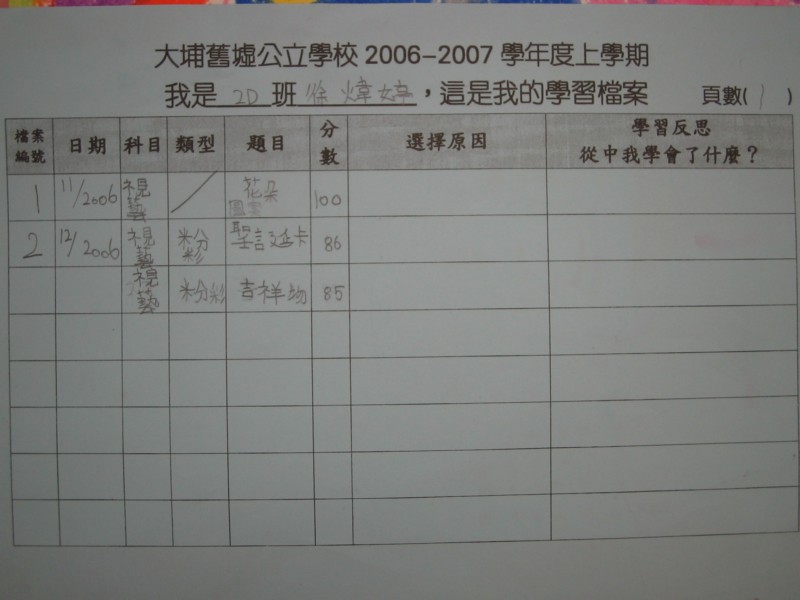 大埔舊墟公立學校 2006-2007 學年度上學期
我是 2D 班 徐煒婷，這是我的學習檔案 頁數( 1 )
檔案編號 日期 科目 類型 題目 分數 選擇原因 學習反思 從中我學會了什麼？
1 11/2006 視藝 ／ 花朵 100
2 12/2006 視藝 粉彩 卡 86
視藝 粉彩 吉祥物 85